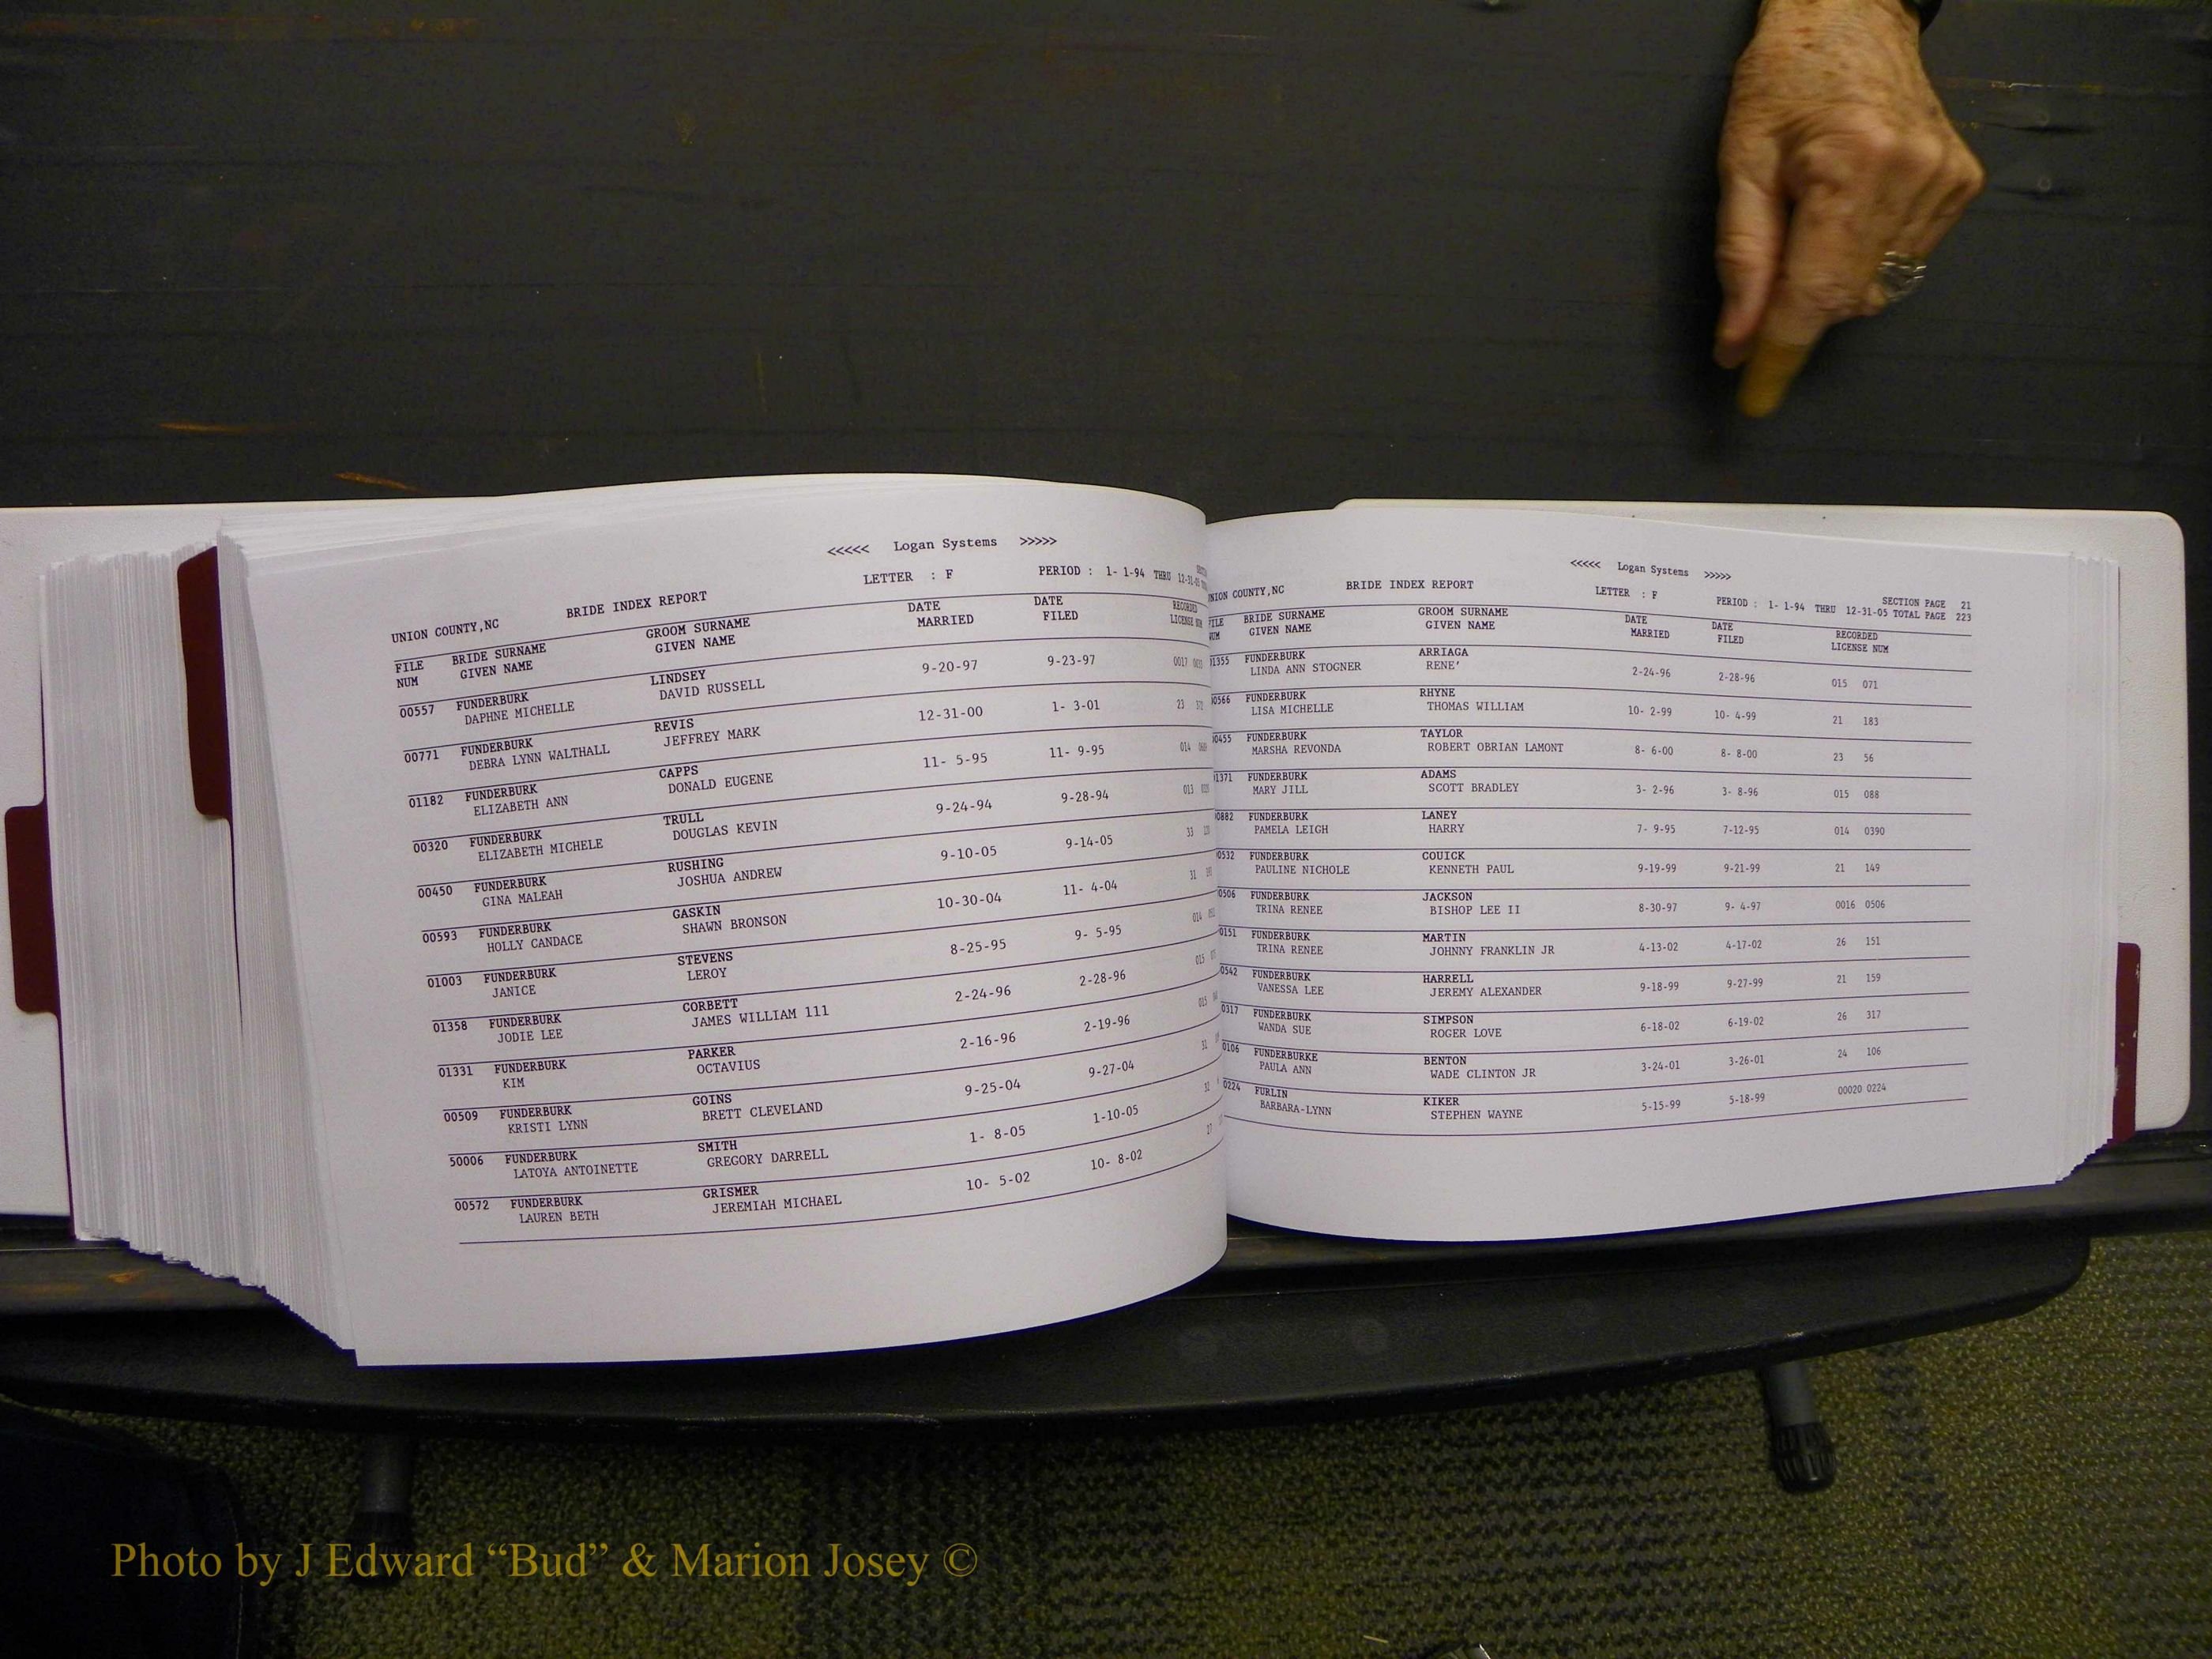 <<<<< Logan Systems >>>>>
UNION COUNTY,NC BRIDE INDEX REPORT LETTER : F PERIOD : 1- 1-94 THRU
FILE BRIDE SURNAME GROOM SURNAME DATE DATE RECORDED
NUM GIVEN NAME GIVEN NAME MARRIED FILED LICENSE NUM
00557 FUNDERBURK LINDSEY 9-20-97 9-23-97 0017
DAPHNE MICHELLE DAVID RUSSELL
00771 FUNDERBURK REVIS 12-31-00 1- 3-01 23
DEBRA LYNN WALTHALL JEFFREY MARK
01182 FUNDERBURK CAPPS 11- 5-95 11- 9-95 014
ELIZABETH ANN DONALD EUGENE
00320 FUNDERBURK TRULL 9-24-94 9-28-94 013
ELIZABETH MICHELE DOUGLAS KEVIN
00450 FUNDERBURK RUSHING 9-10-05 9-14-05 33
GINA MALEAH JOSHUA ANDREW
00593 FUNDERBURK GASKIN 10-30-04 11- 4-04 31
HOLLY CANDACE SHAWN BRONSON
01003 FUNDERBURK STEVENS 8-25-95 9- 5-95 014
JANICE LEROY
01358 FUNDERBURK CORBETT 2-24-96 2-28-96 015
JODIE LEE JAMES WILLIAM 111
01331 FUNDERBURK PARKER 2-16-96 2-19-96 015
KIM OCTAVIUS
00509 FUNDERBURK GOINS 9-25-04 9-27-04 31
KRISTI LYNN BRETT CLEVELAND
50006 FUNDERBURK SMITH 1- 8-05 1-10-05
LATOYA ANTOINETTE GREGORY DARRELL
00572 FUNDERBURK GRISMER 10- 5-02 10- 8-02 27
LAUREN BETH JEREMIAH MICHAEL
<<<<< Logan Systems >>>>>
UNION COUNTY,NC BRIDE INDEX REPORT LETTER : F SECTION PAGE 21
PERIOD : 1- 1-94 THRU 12-31-05 TOTAL PAGE 223
FILE BRIDE SURNAME GROOM SURNAME DATE DATE RECORDED
NUM GIVEN NAME GIVEN NAME MARRIED FILED LICENSE NUM
01355 FUNDERBURK ARRIAGA 2-24-96 2-28-96 015 071
LINDA ANN STOGNER RENE'
00566 FUNDERBURK RHYNE 10- 2-99 10- 4-99 21 183
LISA MICHELLE THOMAS WILLIAM
00455 FUNDERBURK TAYLOR 8- 6-00 8- 8-00 23 56
MARSHA REVONDA ROBERT OBRIAN LAMONT
01371 FUNDERBURK ADAMS 3- 2-96 3- 8-96 015 088
MARY JILL SCOTT BRADLEY
00882 FUNDERBURK LANEY 7- 9-95 7-12-95 014 0390
PAMELA LEIGH HARRY
0532 FUNDERBURK COUICK 9-19-99 9-21-99 21 149
PAULINE NICHOLE KENNETH PAUL
0506 FUNDERBURK JACKSON 8-30-97 9- 4-97 0016 0506
TRINA RENEE BISHOP LEE II
0151 FUNDERBURK MARTIN 4-13-02 4-17-02 26 151
TRINA RENEE JOHNNY FRANKLIN JR
0542 FUNDERBURK HARRELL 9-18-99 9-27-99 21 159
VANESSA LEE JEREMY ALEXANDER
0317 FUNDERBURK SIMPSON 6-18-02 6-19-02 26 317
WANDA SUE ROGER LOVE
0106 FUNDERBURKE BENTON 3-24-01 3-26-01 24 106
PAULA ANN WADE CLINTON JR
0224 FURLIN KIKER 5-15-99 5-18-99 00020 0224
BARBARA-LYNN STEPHEN WAYNE
Photo by J Edward “Bud” & Marion Josey ©